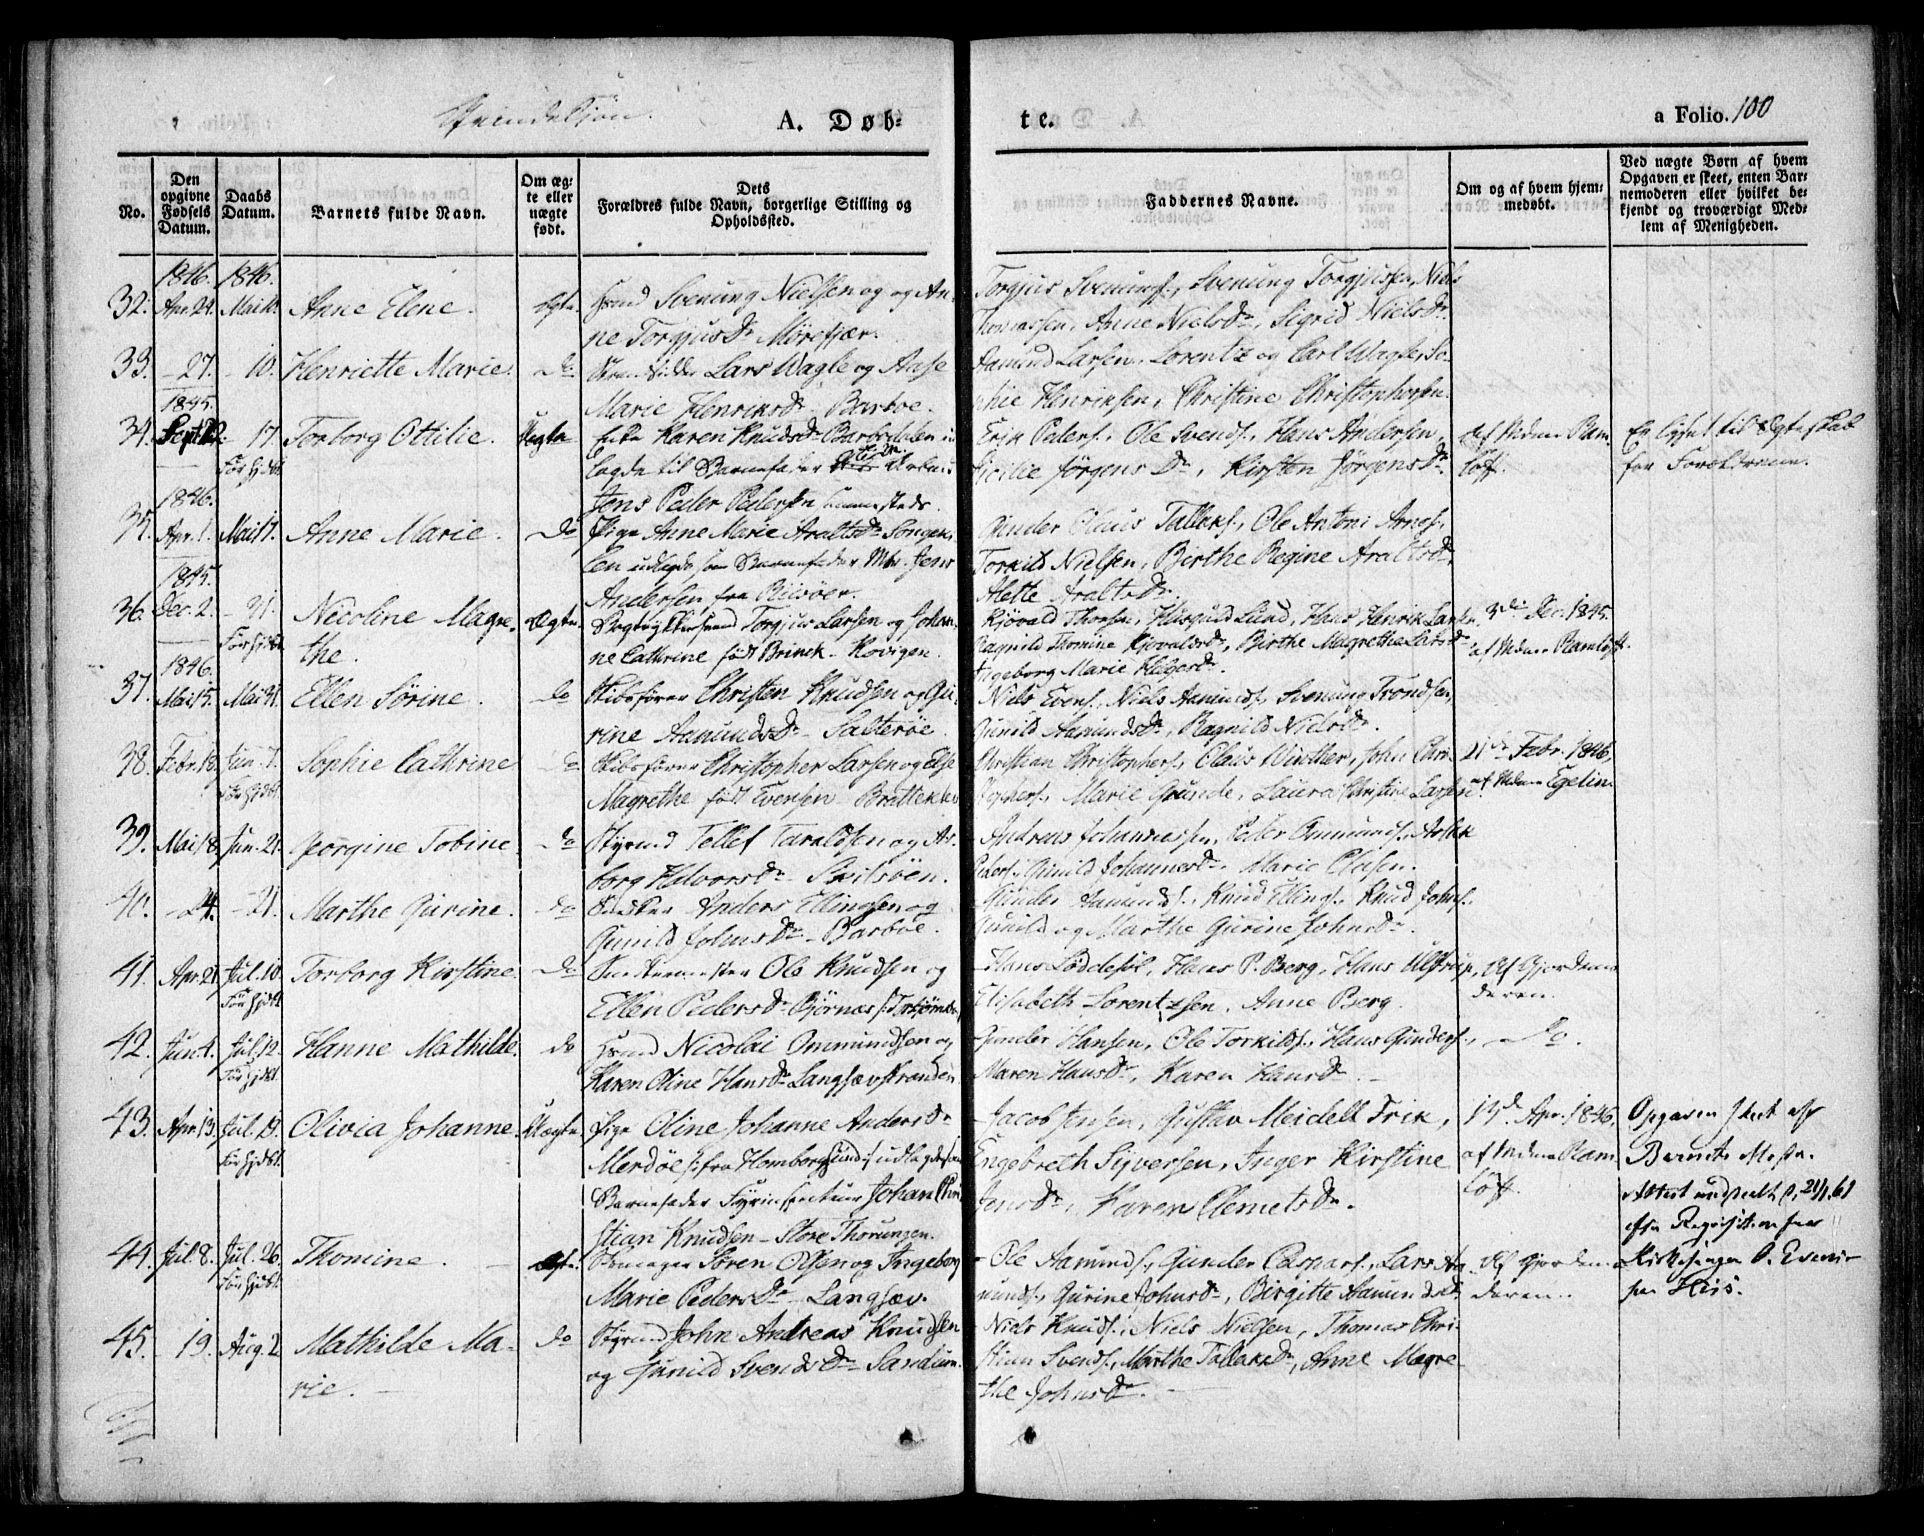 Qvindekjøn.
A. Døb-
te.
a Folio. 100
No.
Den opgivne Fødsels Datum.
Daabs Datum.
Barnets fulde Navn.
Om ægte eller uægte født.
Dets Forældres fulde Navn, borgerlige Stilling og Opholdssted.
Faddernes Navne.
Om og af hvem hjemmedøbt.
Ved uægte Børn af hvem Opgaven er skeet, enten Barnemoderen eller hvilket bekjendt og troværdigt Medlem af Menigheden.
1846. 1846.
32. Apr. 24. Mai 10. Anne Elene. Ægte. Hsmd Svenung Nielsen og og An-
ne Torgjusdr Mørefjær.
Torgjus Svenungs., Svenung Torgjussen, Niels
Thomassen, Anne Nielsdr, Sigrid Nielsdr
33. - 27. - 10. Henriette Marie. Do Lars Wagle og Aase
Marie Henriksdr Barboe.
Aamund Larsen, Lorentz og Carl Wagle, So-
phie Henriksen, Christine Christophersen.
1845.
34. Sept. - 17. Torborg Ottilie. Uægte Enke Karen Knudsdr Barbodalen ud
Før Hjdbt. lagde til Barnefader
Jens Peder Pedersen sammesteds.
Erik Peders., Ole Svends., Hans Andersen,
Sicilie Jørgensdr, Kirsten Jørgensdr
af Mdme Ram
løff.
Er lyset til Ægteskab
for Forældrene.
1846.
35. Apr. 1. Mai 17. Anne Marie. Do Pige Anne Marie Araltsdr Songe-
len udlagde som Barnefader Mtr. Jens
Andersen fra Riisøer.
Gunder Claus Tallaks., Ole Antoni Arnes.,
Torkild Nielsen, Birthe Regine Araltsdr,
Alette Araltsdr.
1845.
36. Dec. 2. - 31. Nicoline Magre- Ægte. Torgjus Larsen og Johan-
Før Hjdbt. the. ne Cathrine født Brinck - Kovigen.
Kjøvald Thorsen, Lund, Hans Henrik Larsen,
Ragnild Thomine Kjøvaldsdr, Birthe Magrethe Larsdr
Ingeborg Marie Helgesdr.
3die Dec. 1845.
af Mdme Ramløff.
1846.
37. Mai 5. Mai 31. Ellen Sørine. Do Skibsfører Christen Knudsen og Gu-
rine Aamundsdr - Salterøe.
Niels Evens., Niels Aamunds., Svenung Trondsen,
Gunild Aamundsdr, Ragnild Nielsdr.
38. Febr. 18. Jun. 7. Sophie Cathrine Do Skibsfører Christopher Larsen og Else
Før Hjdbt. Magrethe født Evensen - Brattekley
Christian Christophers., Claus Winther, John Chri-
stophers., Marie Grunde, Laura Christine Larsen.
21de Febr. 1846,
af Mdme Egelin
39. Mai 18. Jun. 21. Georgine Tobine Do Styrmd Tellef Taraldsen og As-
borg Halvorsdr -
Andreas Johannessen, Peder Ommunds., Aslak
Peders., Gunild Johannesdr, Marie Olasen.
40. - 24. - 21. Marthe Gurine. Do Anders Ellingsen og
Gunild Johnsdr - Barboe.
Gunder Aamunds., Knud Ellings., Knud Johns.
Gunild og Marthe Gurine Johnsdr.
41. Apr. 21. Jul. 10. Torborg Kirstine. Do Ole Knudsen og
Før Hjdbt. Ellen Pedersdr Bjørnæs
Hans Løddesøl, Hans P. Berg, Hans Ulstrup,
Elisabeth Lorentzsen, Anne Berg.
Af Gjordemo
deren.
42. Jun. 4. Jul. 12. Hanne Mathilde. Do Hsmd Nicolai Ommundsen og
Før Hjdbt. Karen Oline Hansdr Langsævstranden
Gunder Hansen, Ole Torkilds., Hans Gunders.,
Maren Hansdr, Karen Hansdr. -
Do.
43. Apr. 13. Jul. 19. Olivia Johanne. Uægte. Pige Oline Johanne Andersdr
Før Hjdbt. Merdøe fra Homborgsund udlagde som
Barnefader Johan Chri-
stian Knudsen - Store Thorungen.
Jacob Jensen, Gustav Meidell Frik,
Engebreth Siversen, Inger Kirstine
Jensdr, Karen Clemetsdr.
Apr. 1846,
af Mdme Ram
løff.
Opgaven skeet af
Barnets Moder.
Attest uudstedt d. 21/1 61
efter Reqvisition fra
Kirkesanger O. Evensen
paa Hiis.
44. Jul. 8. Jul. 26. Thomine. - Ægte. Søren Olsen og Ingeborg
Før Hjdbt. Marie Pedersdr - Langsæv.
Ole Aamunds., Gunder Caspars., Lars Aa-
munds., Gurine Johnsdr, Birgitte Aamundsdr
Af Gjordemo
deren.
45. - 19. Aug. 2. Mathilde Ma- Do Styrmd John Andreas Knudsen
rie. - og Gunild Svendsdr Sandum.
Niels Knuds., Niels Nielsen, Thomas Chri-
stian Svends., Marthe Tallaksdr, Anne Magre-
the Johnsdr. -